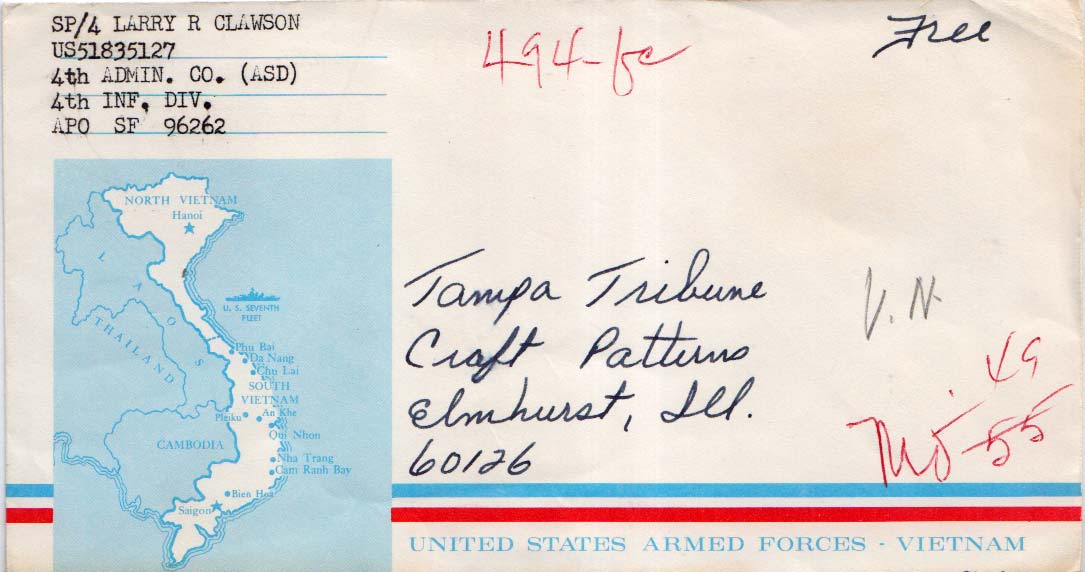 SP/4 LARRY R CLAWSON
US51835127
4th ADMIN. CO. (ASD)
4th INF, DIV.
APO SF 96262
494-fc
Free
NORTH VIETNAM
Hanoi
LAOS
THAILAND
U. S. SEVENTH
FLEET
Phu Bai
Da Nang
Chu Lai
SOUTH
VIETNAM
Pleiku
An Khe
Qui Nhon
CAMBODIA
Nha Trang
Cam Ranh Bay
Bien Hoa
Saigon
Tampa Tribune
Craft Patterns
Elmhurst, Ill.
60126
V.N
49
55
UNITED STATES ARMED FORCES - VIETNAM